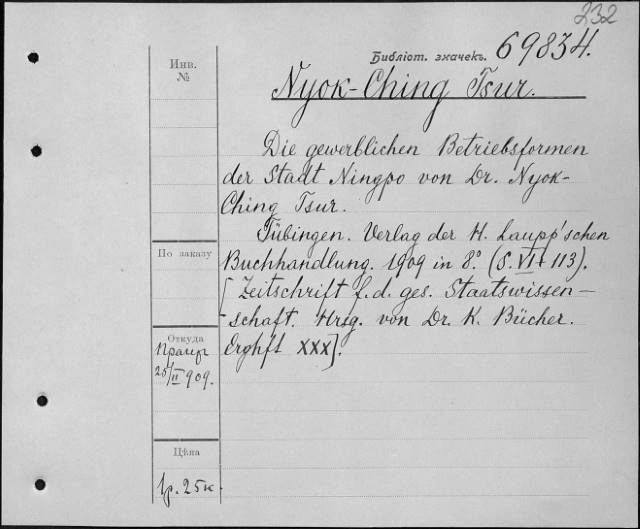 232
Библіот. значекъ. 69834.
Инв.
№
Nyok-Ching Tsur.
Die gewerblichen Betriebsformen
der Stadt Ningpo von Dr. Nyok-
Ching Tsur.
Tübingen. Verlag der H. Laupp'schen
Buchhandlung. 1909 in 8° (S. VI + 113).
[Zeitschrift f. d. ges. Staatswissen-
schaft. Hrsg. von Dr. K. Bücher.
Erghft XXX].
По заказу
Откуда
25/II 909.
Цѣна
1р. 25к.